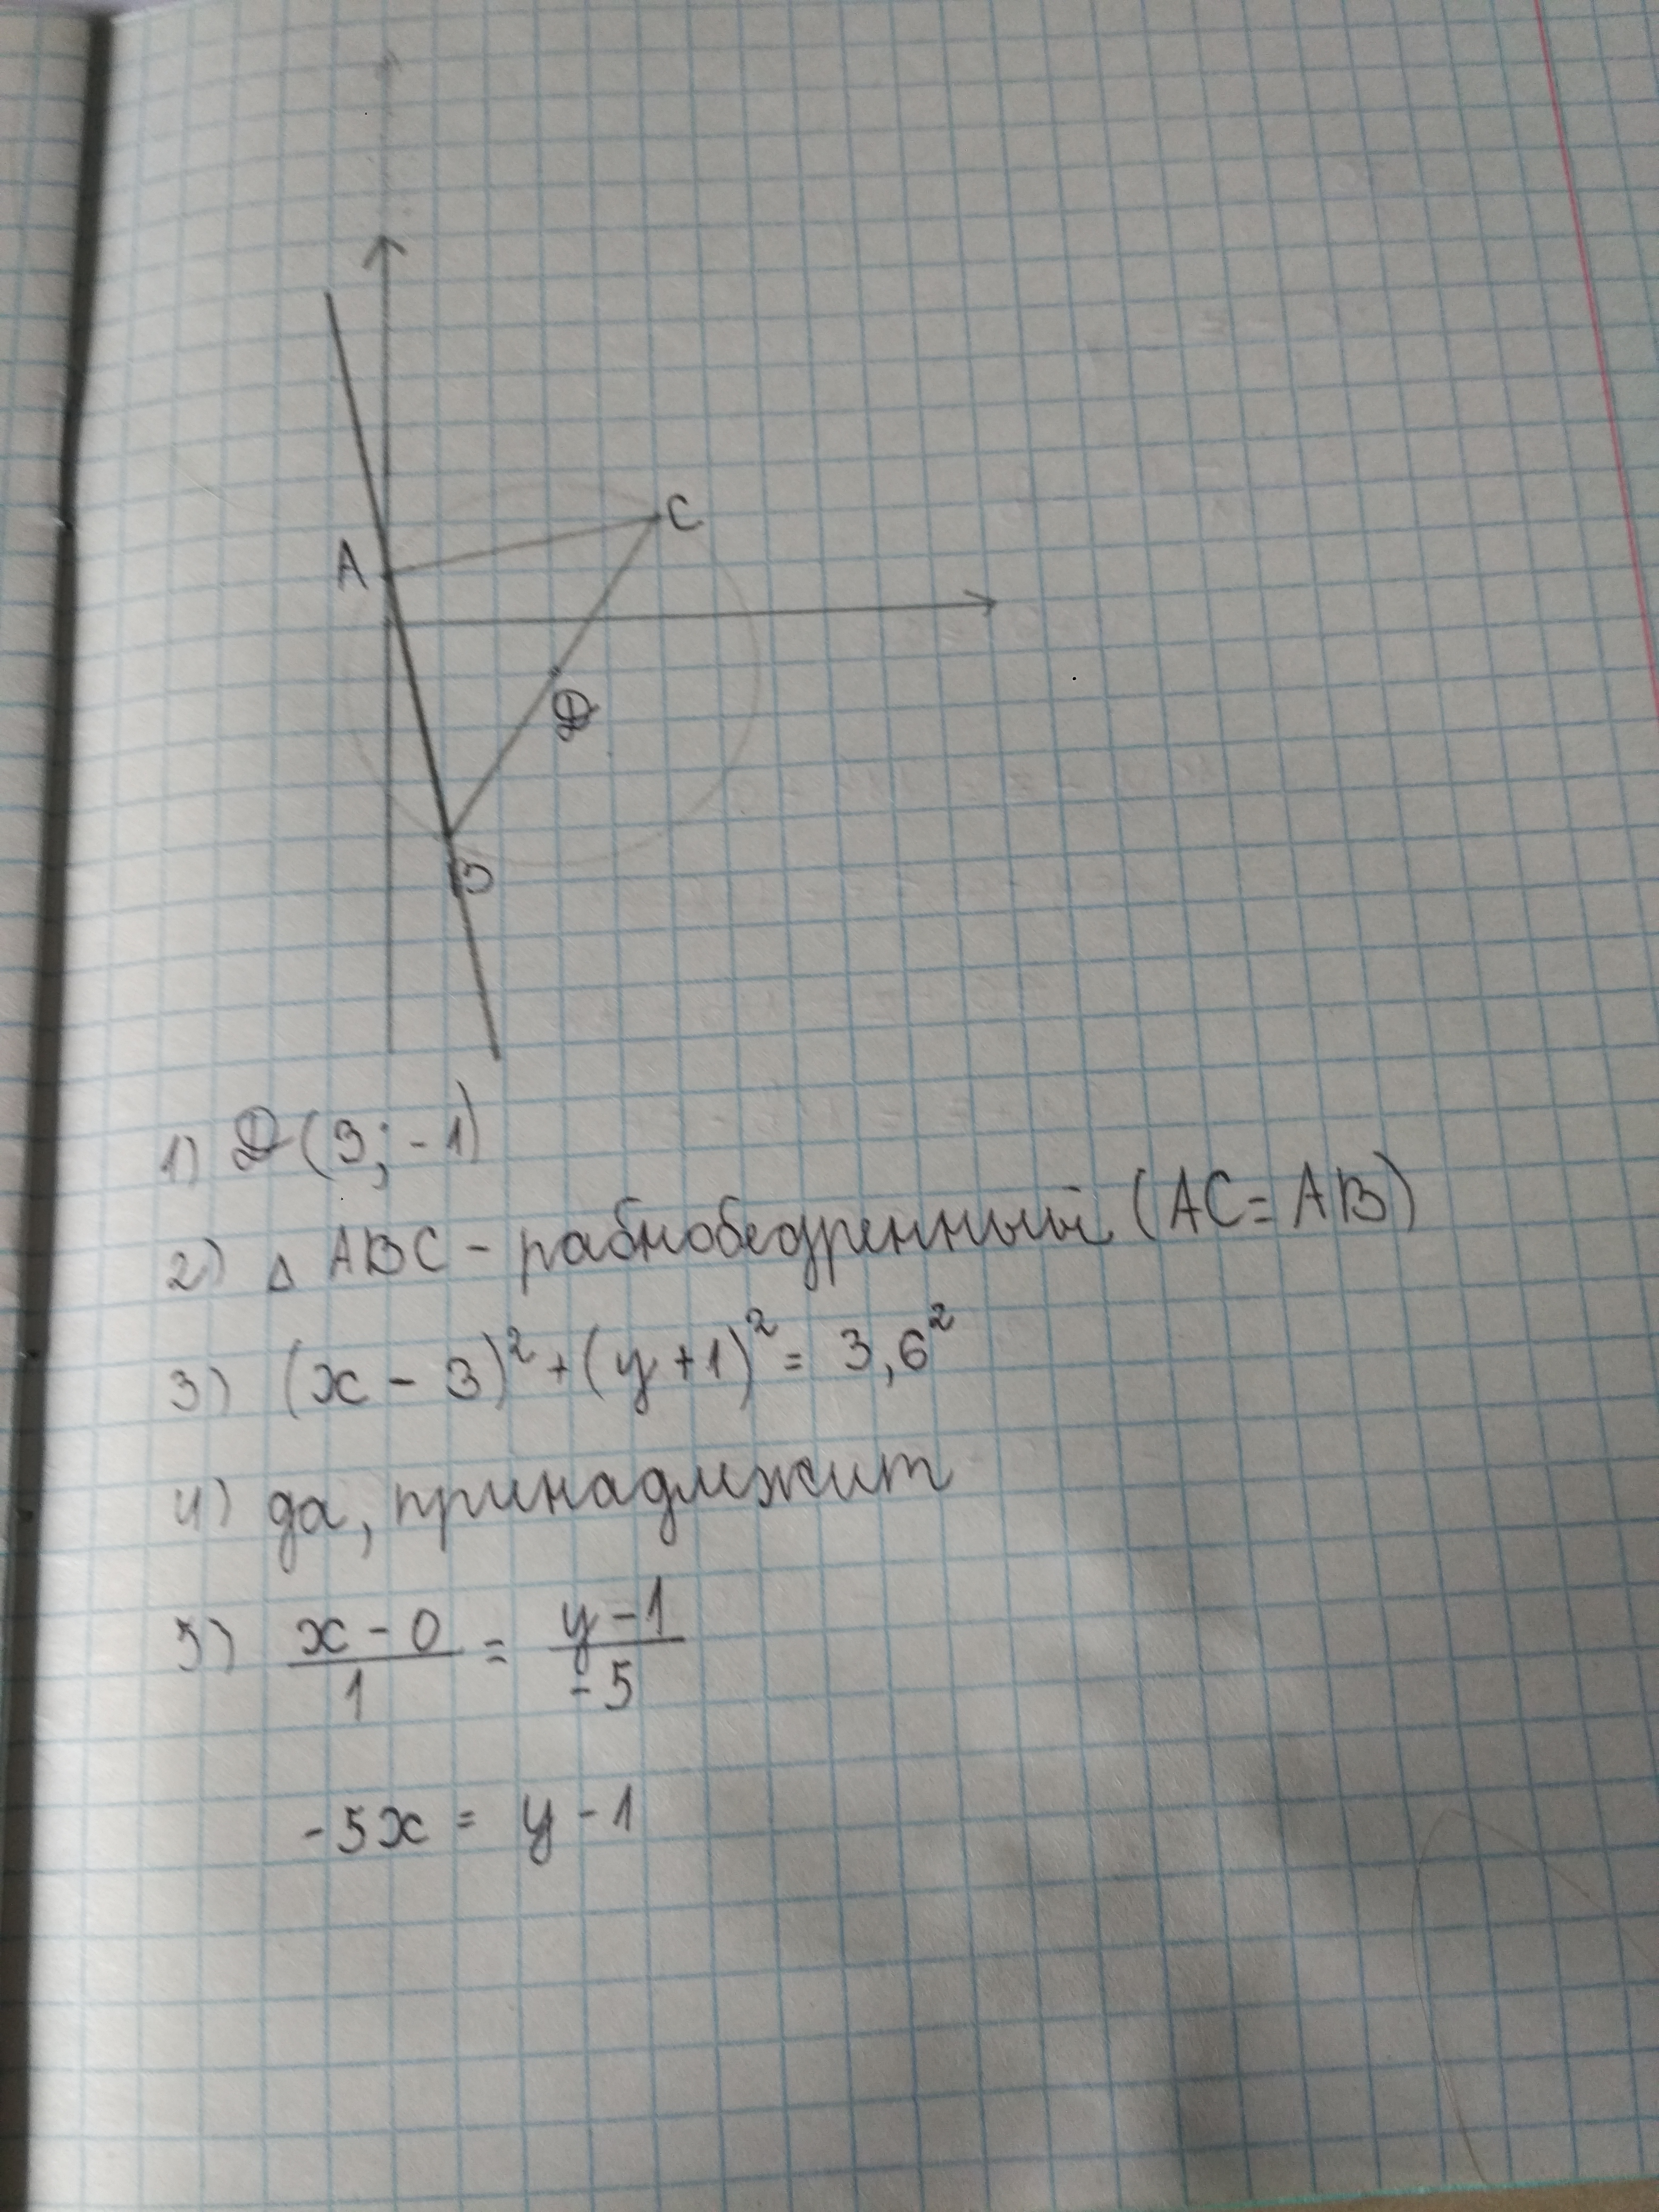 C
A
D
B
1) D(3; -1)
2) △ ABC - равнобедренный (AC = AB)
3) (x - 3)² + (y + 1)² = 3,6²
4) да, принадлежит
5) x - 0 / 1 = y - 1 / -5
-5x = y - 1